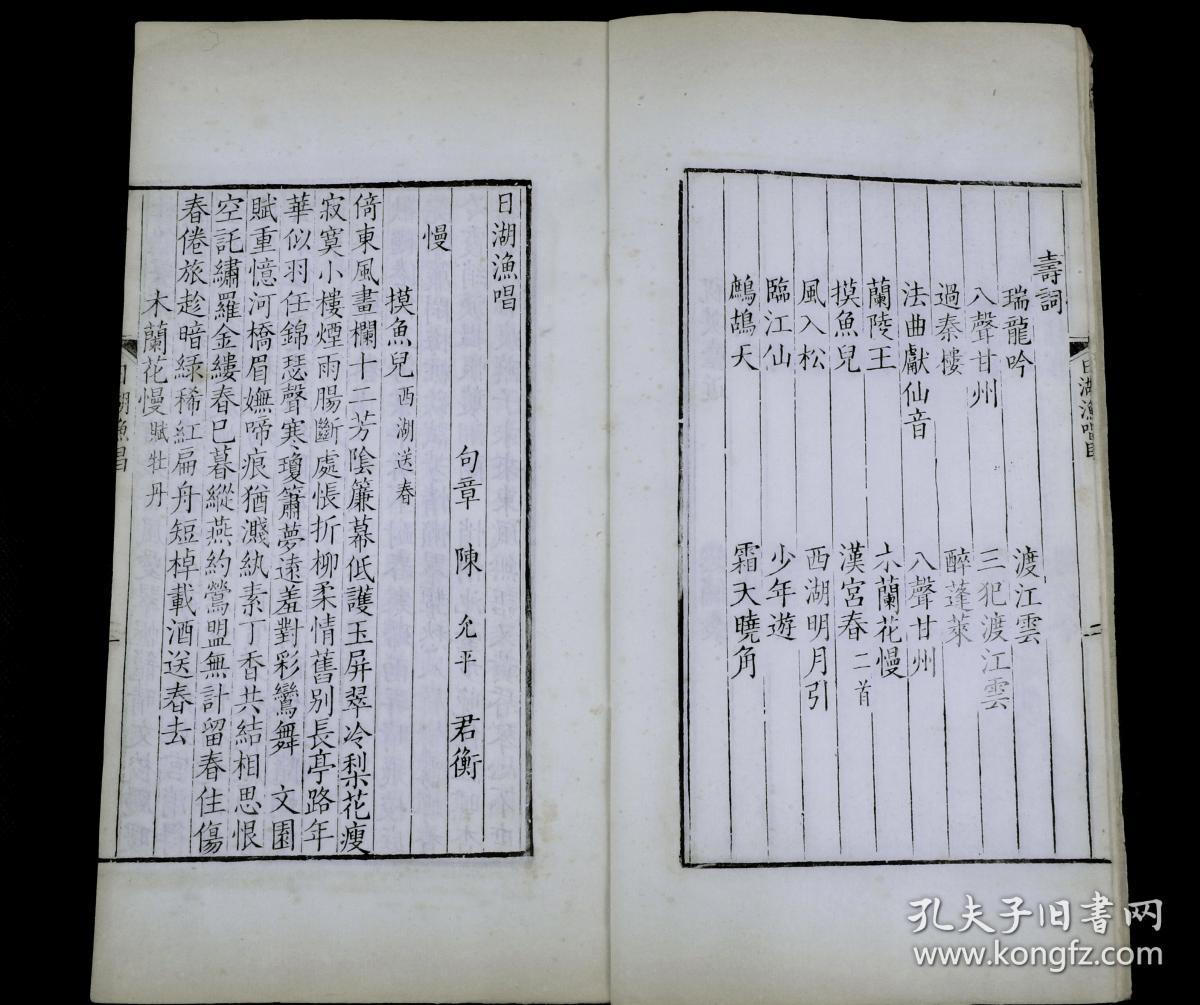 壽詞
瑞龍吟　渡江雲
八聲甘州　三犯渡江雲
過秦樓　醉蓬萊
法曲獻仙音　八聲甘州
蘭陵王　木蘭花慢
摸魚兒　漢宮春二首
風入松　西湖明月引
臨江仙　少年遊
鷓鴣天　霜天曉角
日湖漁唱目
二
日湖漁唱
句章　陳　允平　君衡
慢
摸魚兒西湖送春
倚東風畫欄十二芳陰簾幕低護玉屏翠冷梨花瘦
寂寞小樓煙雨腸斷處悵折柳柔情舊别長亭路年
華似羽任錦瑟聲寒瓊簫夢遠羞對彩鸞舞　文園
賦重憶河橋眉嫵啼痕猶濺紈素丁香共結相思恨
空託繡羅金縷春已暮縱燕約鶯盟無計留春住傷
春倦旅趁暗綠稀紅扁舟短棹載酒送春去
木蘭花慢賦牡丹
日湖漁唱
一
孔夫子旧书网
www.kongfz.com